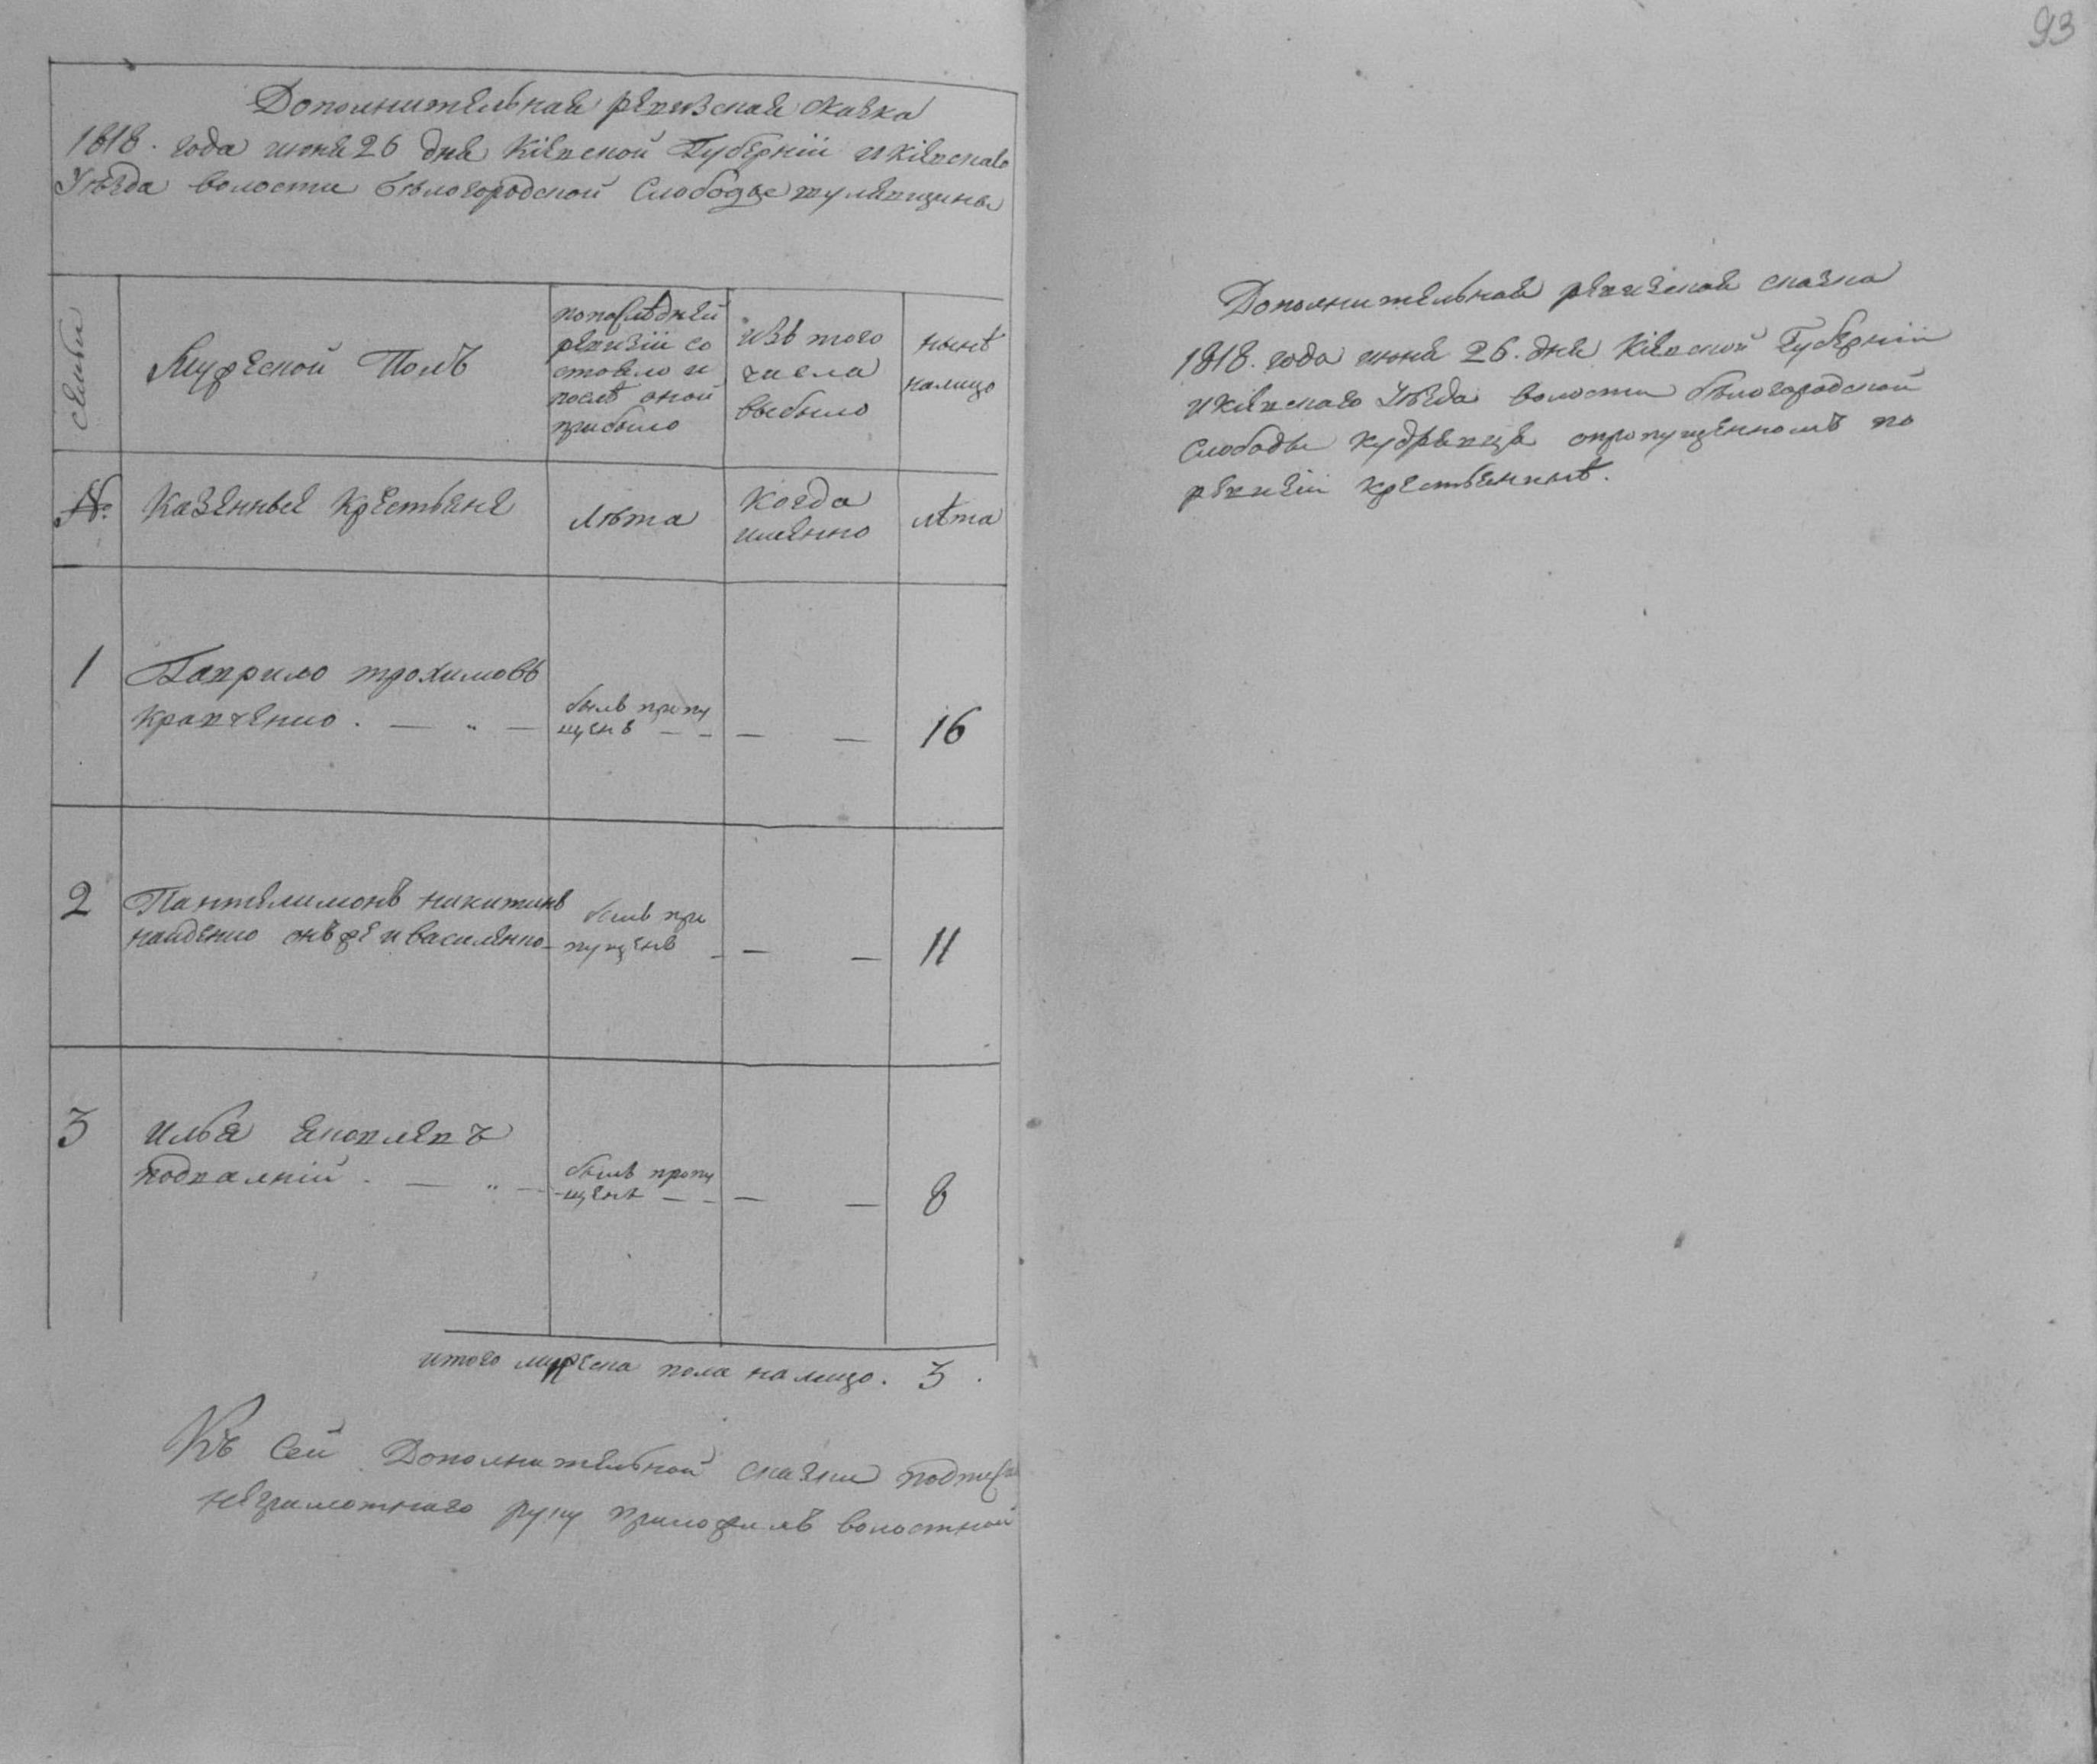 93
Дополнительная ревизская сказка
1818. года июня 26 дня Кіевской Губерніи и Кіевскаго
Уѣзда волости бѣлогородской Слободы
Семьи
Мужеской Полъ
попослѣдней
ревизіи со
стояло и
послѣ оной
прибыло
изъ того
числа
выбыло
нынѣ
налицо
№.
Казенные Крестьяне
лѣта
Когда
именно
лѣта
1
Гаврило трохимовъ
Кравченко . — „ —
былъ пропу
щенъ — -
— —
16
2
Пантелимонъ никитинъ
найденко онъ же и василенко
былъ про
пущенъ -
— —
11
3
илья яковлевъ
подвалній . — „ —
былъ пропу
щенъ — -
— —
8
итого мужеска пола налицо. 3.
Къ Сей Дополнительной сказки
неграмотнаго руку приложилъ волостной
Дополнительная ревизская сказка
1818. года июня 26. дня Кіевской Губерніи
и Кіевскаго Уѣзда волости бѣлогородской
Слободы опропущенномъ по
ревизіи